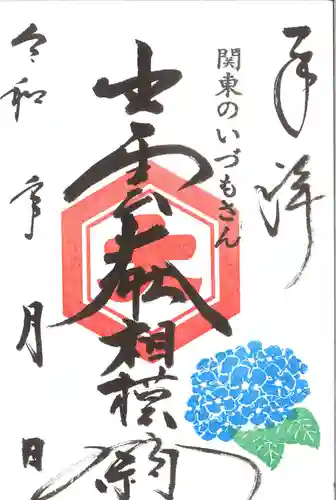 拝詣
関東のいづもさん
出雲大社相模分祠
令和 年 月 日